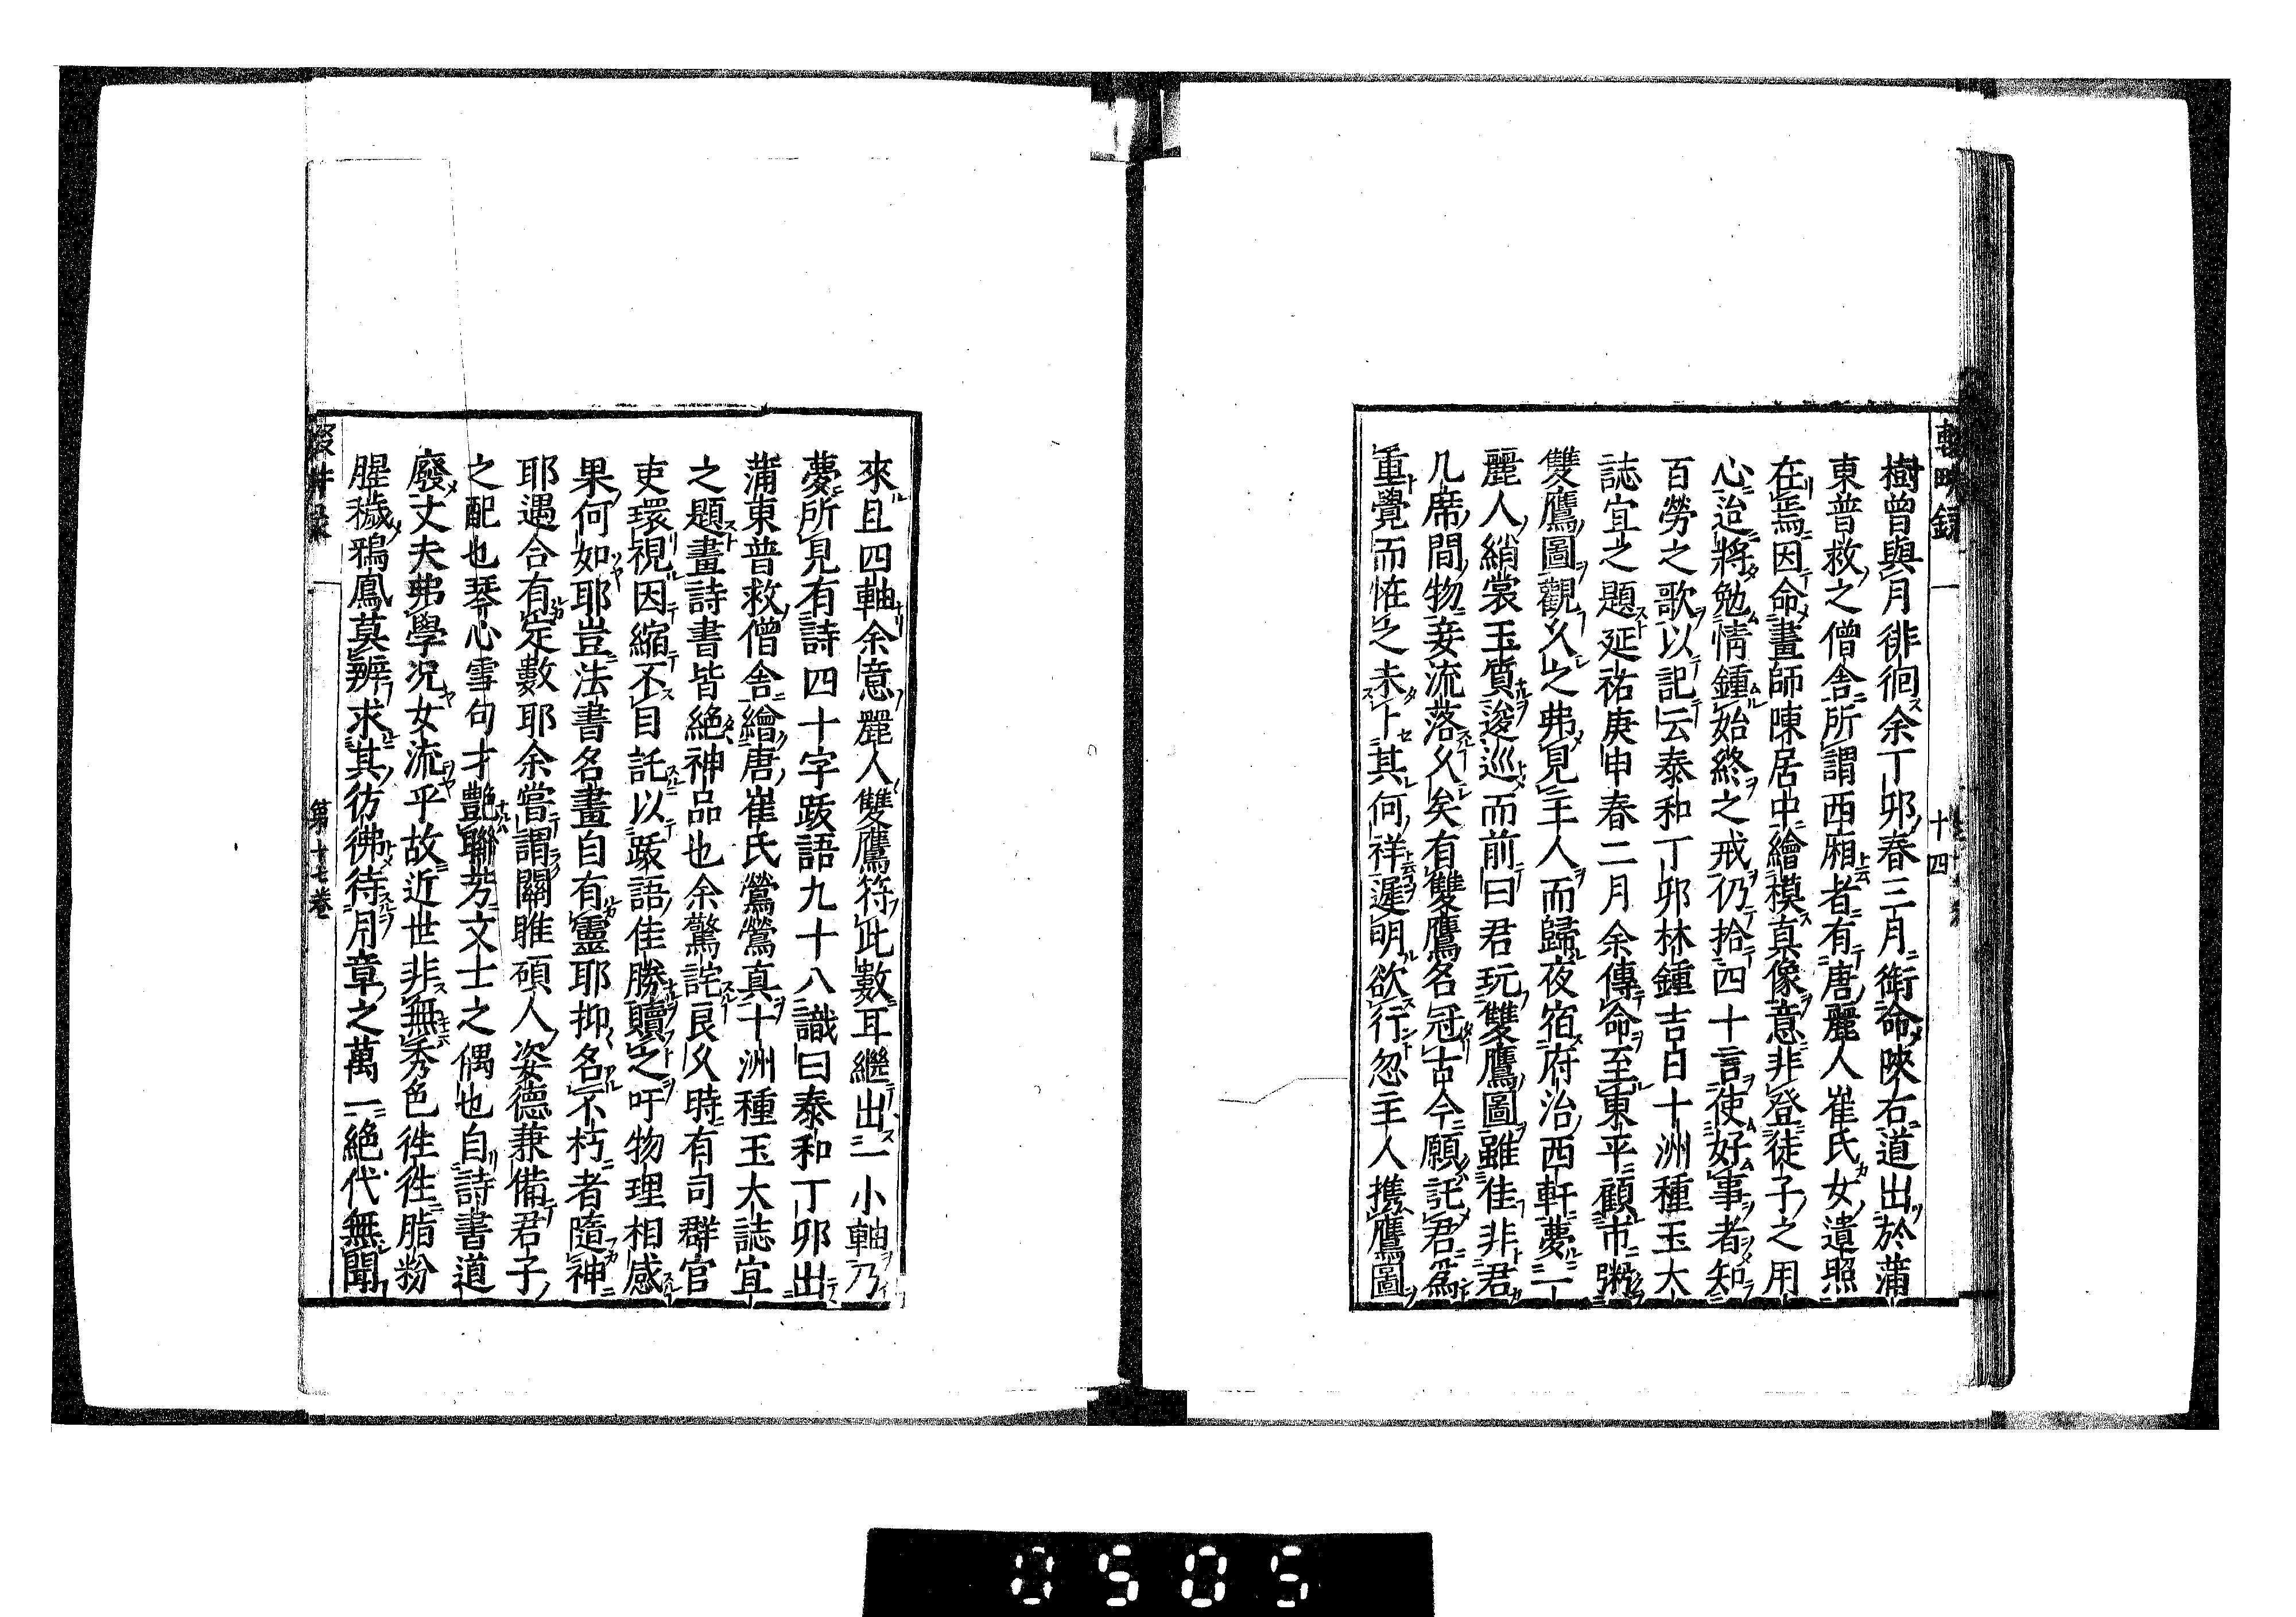 輟畊録 十四
樹曾與月徘徊余丁卯春三月銜命陝右道出於蒲
東普救之僧舎所謂西廂者有唐麗人崔氏女遺照
在焉因命畫師陳居中繪模真像意非登徒子之用
心迨將勉情鍾始終之戒仍拾四十言使好事者知
百勞之歌以記云泰和丁卯林鍾吉日十洲種玉大
誌宜之題延祐庚申春二月余傳命至東平顧市鬻
雙鷹圖觀久之弗見主人而歸夜宿府治西軒夢一
麗人綃裳玉質逡巡而前曰君玩雙鷹圖雖佳非君
几席間物妾流落久矣有雙鷹名冠古今願託君為
重覺而恠之未卜其何祥遲明欲行忽主人攜鷹圖
來且四軸余意麗人雙鷹符此數耳継出一小軸乃
夢所見有詩四十字䟦語九十八識曰泰和丁卯出
蒲東普救僧舎繪唐崔氏鶯鶯真十洲種玉大誌宜
之題畫詩書皆絶神品也余驚詫良久時有司群官
吏環視因縮不自託以䟦語佳勝贖之吁物理相感
果何如耶豈法書名畫自有靈耶抑名不朽者隨神
耶遇合有定數耶余嘗謂關雎碩人姿德兼備君子
之配也琴心雪句才艷聯芳文士之偶也自詩書道
廢丈夫弗學况女流乎故近世非無秀色徃徃脂粉
腥穢鴉鳳莫辨求其彷彿待月章之萬一絶代無聞
第十七卷